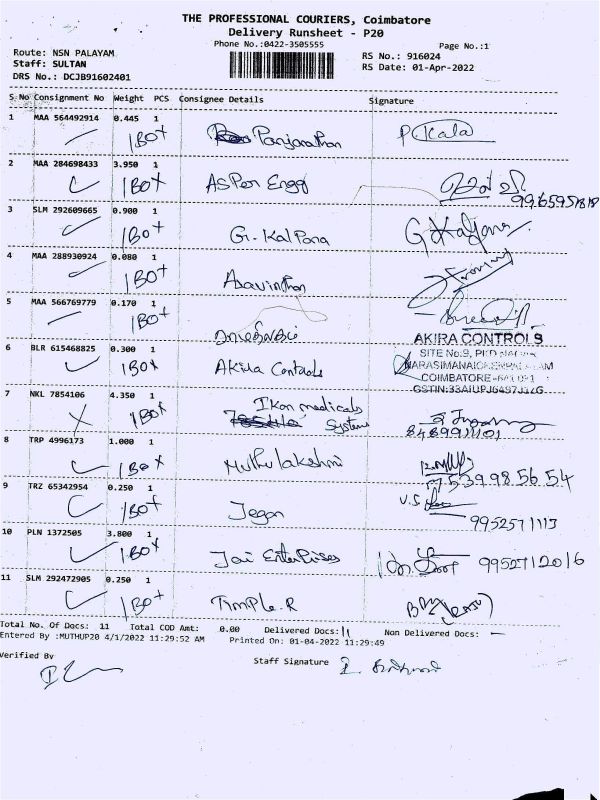 THE PROFESSIONAL COURIERS, Coimbatore
Delivery Runsheet - P20
Phone No.:0422-3505555
Page No.:1
Route: NSN PALAYAM
Staff: SULTAN
DRS No.: DCJB91602401
RS No.: 916024
RS Date: 01-Apr-2022
S No Consignment No Weight PCS Consignee Details Signature
1 MAA 564492914 0.445 1
1BOX P Kala
2 MAA 284698433 3.950 1
1BOX Asper Engg
9965951818
3 SLM 292609665 0.900 1
1BOX G. Kalpana G Kalpana
4 MAA 288930924 0.080 1
1BOX Aravinthan
5 MAA 566769779 0.170 1
1BOX
6 BLR 615468825 0.300 1
1BOX Akira Controls
AKIRA CONTROLS
SITE No:9,
COIMBATORE
7 NKL 7854106 4.350 1
1BOX Ikon medicals
Systems
8489911101
8 TRP 4996173 1.000 1
1BOX Muthulakshmi
75399 85654
9 TRZ 65342954 0.250 1
1BOX Jegan
9952571113
10 PLN 1372505 3.800 1
1BOX Jai Enterprises 9952712016
11 SLM 292472905 0.250 1
1BOX Timple.R
Total No. Of Docs: 11 Total COD Amt: 0.00 Delivered Docs: 11 Non Delivered Docs: —
Entered By :MUTHUP20 4/1/2022 11:29:52 AM Printed On: 01-04-2022 11:29:49
Verified By
Staff Signature